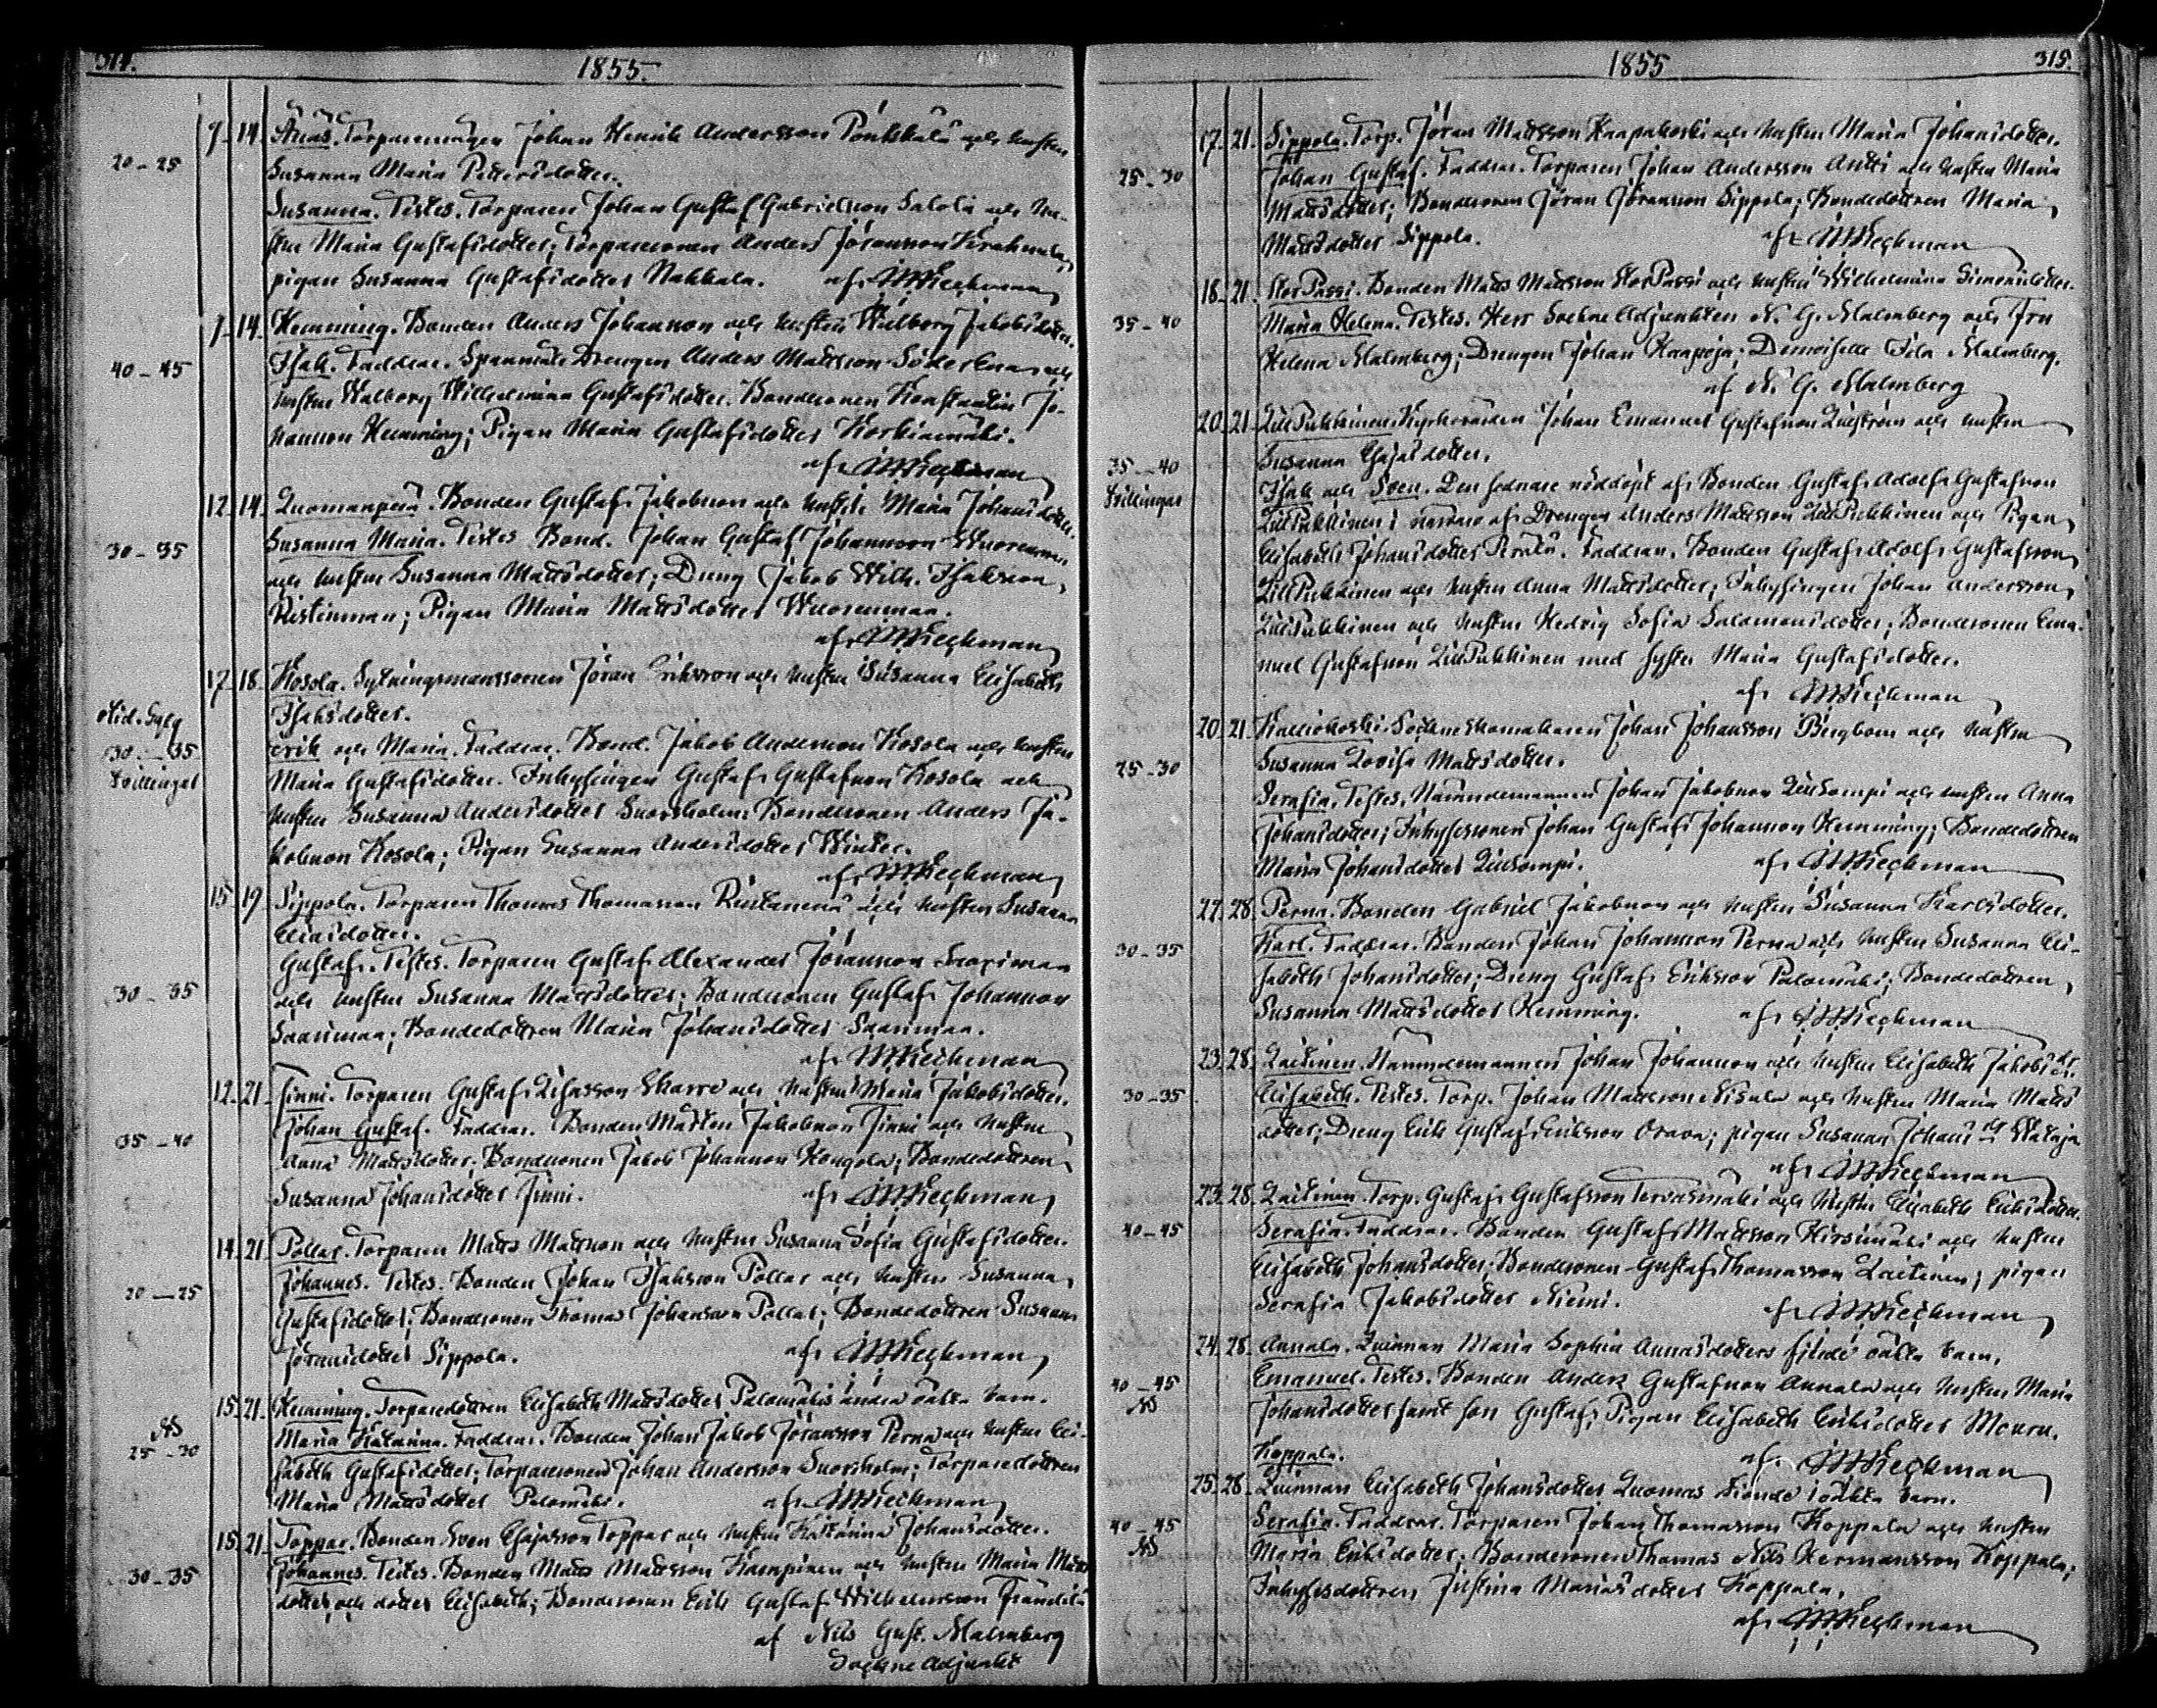 314.
1855.
7. 14. Torparemågen Johan Henrik Andersson och hustru
20-25
Susanna Maria Pettersdotter.
Susanna. Testes. Torparen Johan Gustaf Gabrielsson Salola och hu-
stru Maria Gustafsdotter; Torparesonen Anders Jöransson
pigan Susanna Gustafsdotter Nakkala. af
7. 14. Hemming. Bonden Anders Johansson och hustru Walborg Jakobsdotter.
40-45
Isak. Faddrar. Drengen Anders Mattsson och
hustru Walborg Wilhelmina Gustafsdotter. Bondesonen Konstantin Jo-
hansson Hemming; Pigan Maria Gustafsdotter Koskimäki.
af
12. 14. Luomanperä. Bonden Gustaf Jakobsson och hustru Maria Johansdotter.
30-35
Susanna Maria. Testes Bond. Johan Gustaf Johansson Wuorenmaa
och hustru Susanna Mattsdotter; Dreng Jakob Wilh. Isaksson
Ristinmaa; Pigan Maria Mattsdotter Wuorenmaa.
af
17. 18. Kosola. Sytningsmanssonen Jöran Eriksson och hustru Susanna Elisabeth
Isaksdotter.
30-35
Tvillingar
Erik och Maria. Faddrar. Bond. Jakob Andersson Kosola och hustru
Maria Gustafsdotter. Inhysingen Gustaf Gustafsson Kosola och
hustru Susanna Andersdotter Bondesonen Anders Ja-
kobsson Kosola; Pigan Susanna Andersdotter Winter.
af
15 19 Sippola. Torparen Thomas Thomasson och hustru Susanna
Eliasdotter.
30-35
Gustaf. Testes. Torparen Gustaf Alexander Jöransson Saarimaa
och hustru Susanna Mattsdotter; Bondesonen Gustaf Johansson
Saarimaa; Bondedottren Maria Johansdotter Saarimaa.
af
12. 21. Jinni. Torparen Gustaf och hustru Maria Jakobsdotter.
35-40
Johan Gustaf. Faddrar. Bonden Jakobsson Jinni och hustru
Anna Mattsdotter; Bondesonen Jakob Johansson; Bondedottren
Susanna Johansdotter Jinni. af
14. 21. Pollar. Torparen Matts Mattsson och hustru Susanna Sofia Gustafsdotter.
20-25
Johannes. Testes. Bonden Johan Isaksson Pollar och hustru Susanna
Gustafsdotter; Bondesonen Thomas Johansson Pollar; Bondedottren Susanna
Jöransdotter Sippola. af
15. 21. Hemming. Torparedottren Elisabeth Mattsdotter Palomäkis andra oäkta barn.
25-30
Maria Katarina. Faddrar. Bonden Johan Jakob Jöransson Perna och hustru Eli-
sabeth Gustafsdotter; Torparesonen Johan Andersson; Torparedottren
Maria Mattsdotter Palomäki. af
15. 21. Toppar. Bonden Sven Esajasson Toppar och hustru Katarina Johansdotter.
30-35
Johannes. Testes. Bonden Matts Mattsson Kamppinen och hustru Maria Matts
dotter, och dotter Elisabeth; Bondesonen Erik Gustaf Wilhelmsson Frändilä
af Nils Gust. Malmberg
Sockne Adjunkt
1855
315.
17. 21. Sippola. Torp. Jöran Mattsson Haapakoski och hustru Maria Johansdotter.
25-30
Johan Gustaf. Faddrar. Torparen Johan Andersson Antti och hustru Maria
Mattsdotter; Bondesonen Jöran Jöransson Sippola; Bondedottren Maria
Mattsdotter Sippola. af
18. 21. StorPassi. Bonden Matts Mattsson StorPassi och hustru Wilhelmina Simonsdotter.
35-40
Maria Helena. Testes. Herr Sockne Adjunkten N. G. Malmberg och Fru
Helena Malmberg; Drengen Johan Haapoja; Demoiselle Ida Malmberg.
af N. G. Malmberg
20. 21. LillPukkinen. Kyrkovärden Johan Emanuel Gustafsson Liljström och hustru
Susanna Esajasdotter.
35-40
Tvillingar
Isak och Sven. Den sednare nöddöpt af Bonden Gustaf Adolf Gustafsson
LillPukkinen i närvaro af Drengen Anders Mattsson LillPukkinen och Pigan
Elisabeth Johansdotter Perälä. Faddrar. Bonden Gustaf Adolf Gustafsson
LillPukkinen och hustru Anna Mattsdotter; Inhysingen Johan Andersson
LillPukkinen och hustru Hedvig Sofia Salomonsdotter; Bondesonen Ema-
nuel Gustafsson LillPukkinen med syster Maria Gustafsdotter.
af
20. 21. Kalliokoski. Sockneskomakaren Johan Johansson Bergbom och hustru
Susanna Lovisa Mattsdotter.
25-30
Serafia. Testes. Nämndemannen Johan Jakobsson LillKomsi och hustru Anna
Johansdotter; Inhysessonen Johan Gustaf Johansson Hemming; Bondedottren
Maria Johansdotter. af
22. 28. Perna. Bonden Gabriel Jakobsson och hustru Susanna Karlsdotter.
30-35
Karl. Faddrar. Bonden Johan Johansson Perna och hustru Susanna Eli-
sabeth Johansdotter; Dreng Gustaf Eriksson Palomäki; Bondedottren
Susanna Mattsdotter Hemming. af
23. 28. Laitinen. Nämndemannen Johan Johansson och hustru Elisabeth Jakobsdr.
30-35
Elisabeth. Testes. Torp. Johan Mattsson Nisula och hustru Maria Matts
dotter; Dreng Erik Gustaf Eriksson Orava; pigan Susanna Johans dr Wataja
af
23. 28. Laitinen. Torp. Gustaf Gustafsson Tervasmäki och hustru Elisabeth Eriksdotter.
40-45
Serafia. Faddrar. Bonden Gustaf Mattsson Hirsimäki och hustru
Elisabeth Johansdotter; Bondesonen Gustaf Thomasson Laitinen; pigan
Serafia Jakobsdotter Niemi. af
24. 28. Annala. Qvinnan Maria Sophia Annasdotters fjerde oäkta barn.
40-45
Emanuel. Testes. Bonden Anders Gustafsson Annala och hustru Maria
Johansdotter samt son Gustaf; Pigan Elisabeth Eriksdotter
Koppala. af
25. 28. Qvinnan Elisabeth Johansdotter Luomas oäkta barn.
40-45
Serafia. Faddrar. Torparen Johan Thomasson Koppala och hustru
Maria Eriksdotter; Bondesonen Thomas Nils Hermansson Koppala;
Inhysesdottren Justina Mariasdotter Koppala.
af